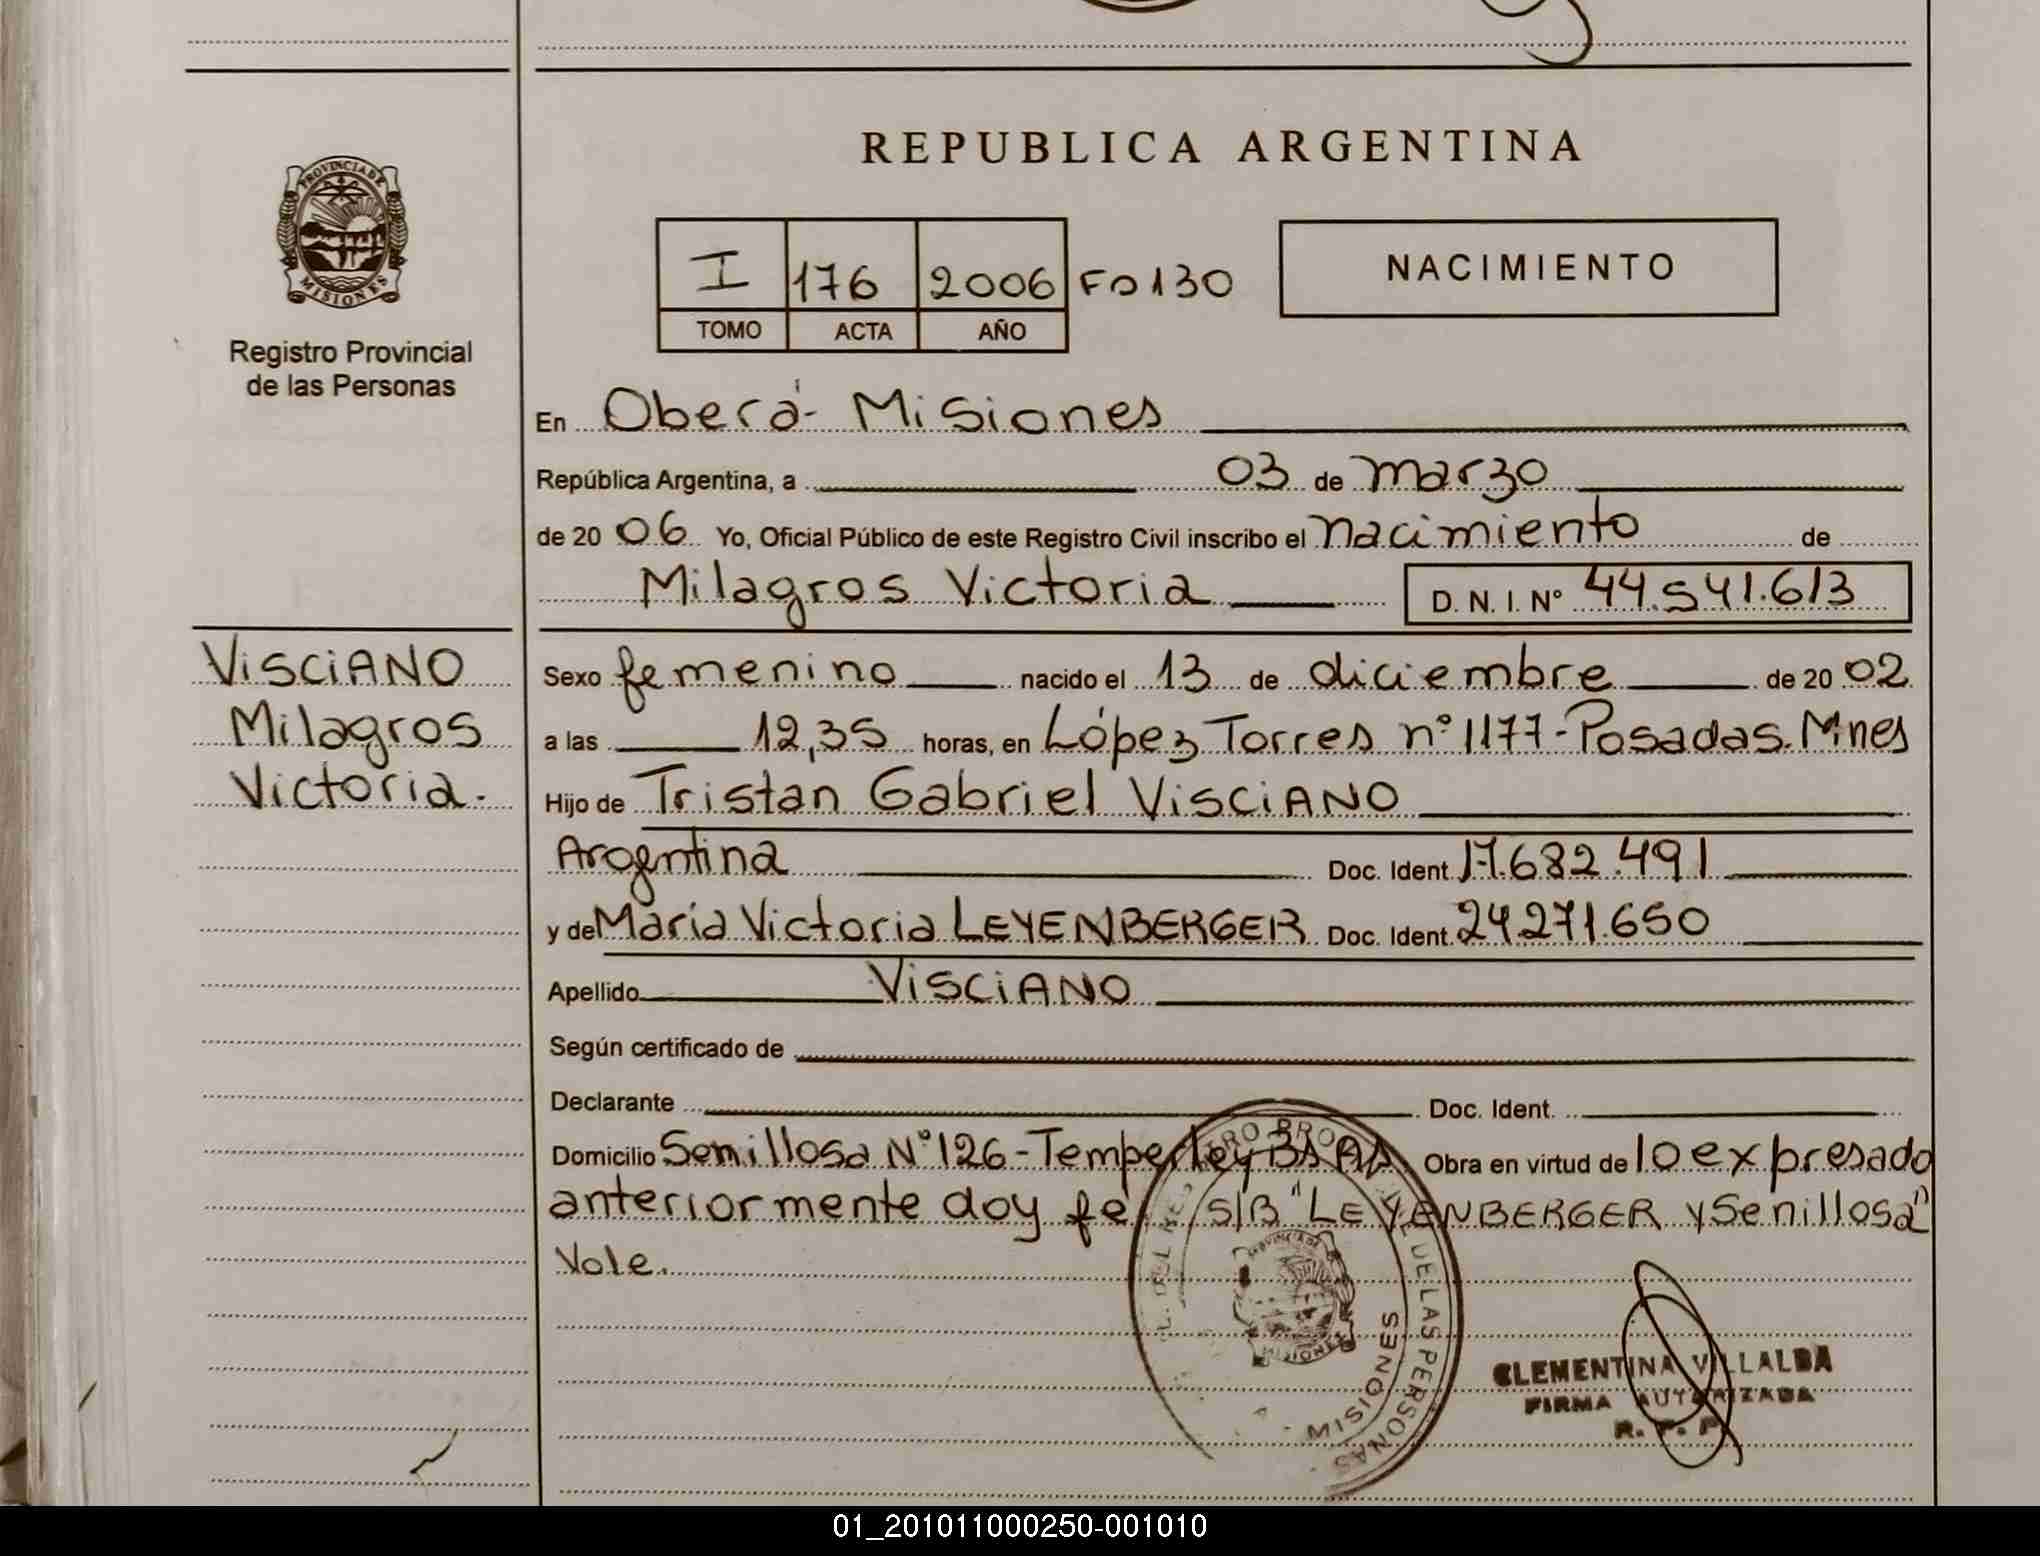 REPUBLICA ARGENTINA
PROVINCIA DE
MISIONES
Registro Provincial
de las Personas
I 176 2006 Fo 130
TOMO ACTA AÑO
NACIMIENTO
En Oberá - Misiones
República Argentina, a 03 de marzo
de 20 06 Yo, Oficial Público de este Registro Civil inscribo el nacimiento de
Milagros Victoria D. N. I. Nº 44.541.613
VISCIANO
Milagros
Victoria.
Sexo femenino nacido el 13 de diciembre de 20 02
a las 12,35 horas, en López Torres nº 1177 - Posadas. Mnes
Hijo de Tristan Gabriel VISCIANO
Argentina Doc. Ident. 17.682.491
y de María Victoria LEYENBERGER Doc. Ident. 24.271.650
Apellido VISCIANO
Según certificado de
Declarante Doc. Ident.
Domicilio Senillosa Nº 126 - Temperley Bs As Obra en virtud de lo expresado
anteriormente doy fé s/B "LEYENBERGER y Senillosa"
Vale.
DE LAS PERSONAS
MISIONES
CLEMENTINA VILLALBA
FIRMA AUTORIZADA
01_201011000250-001010